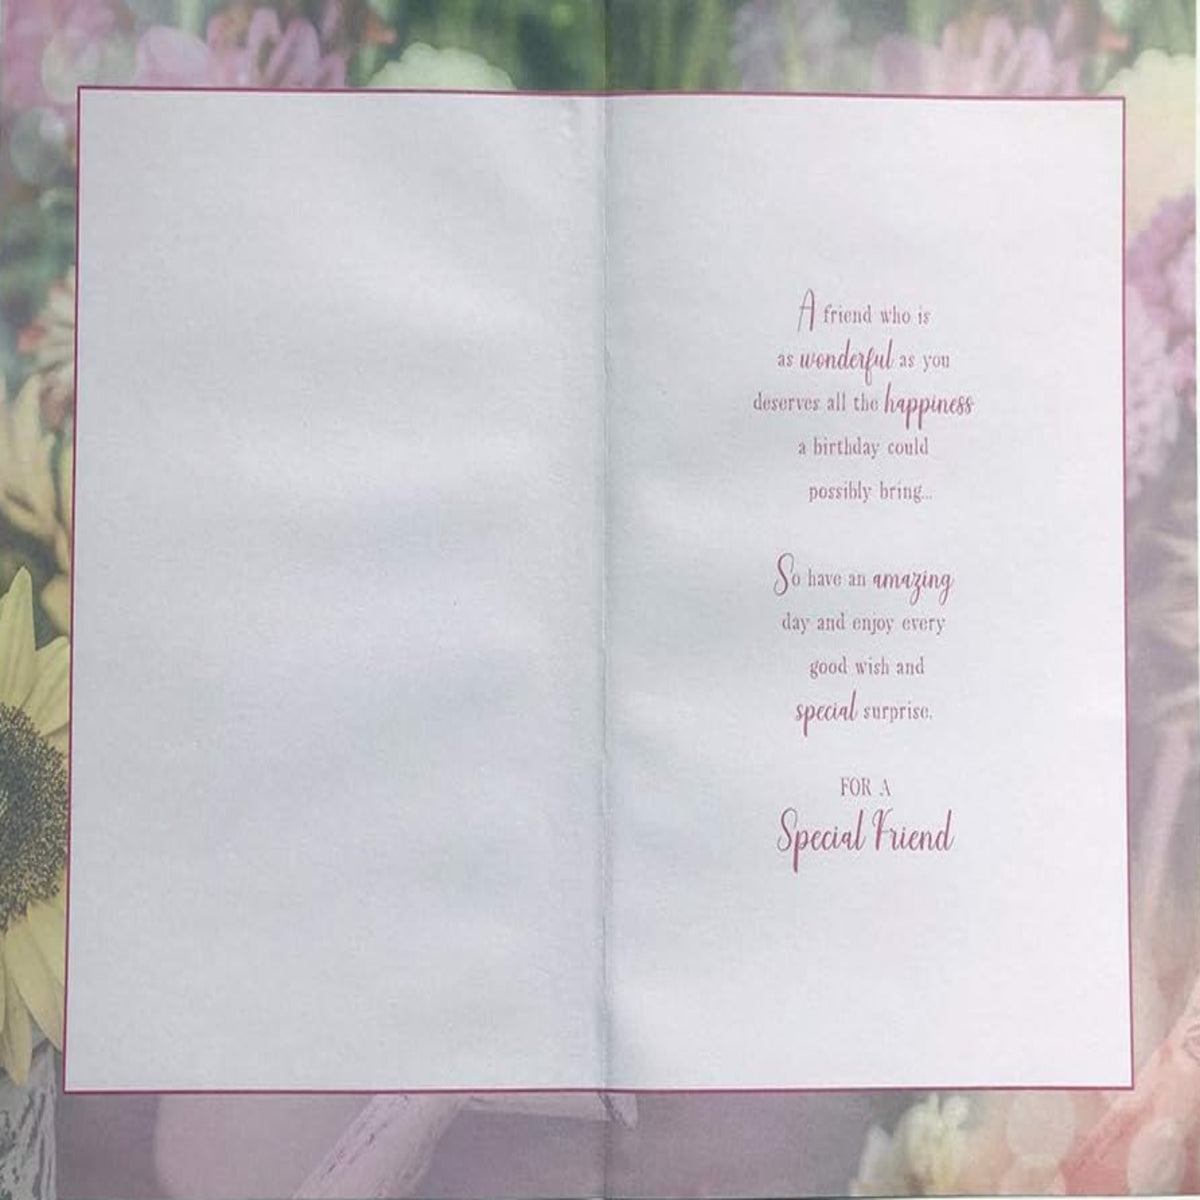 A friend who is
as wonderful as you
deserves all the happiness
a birthday could
possibly bring...
So have an amazing
day and enjoy every
good wish and
special surprise.
FOR A
Special Friend